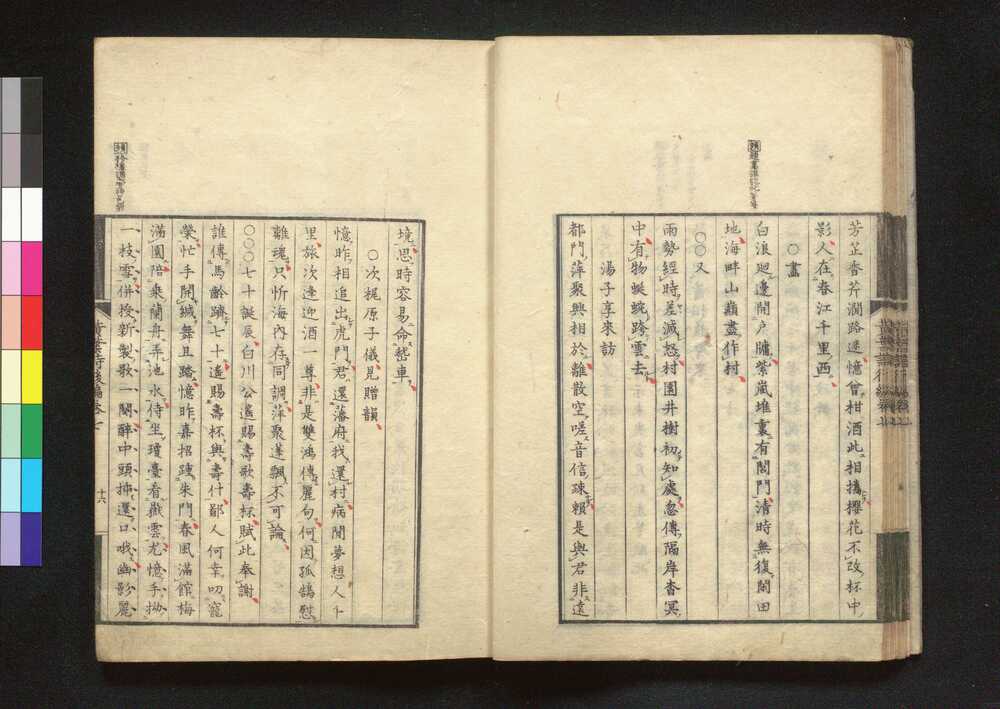 芳芷香芹澗路迷憶曾柑酒此相攜櫻花不改杯中
影人在春江千里西
○畫
白浪廻邊開戶牖紫嵐堆裏有閣門清時無復閒田
地海畔山巓盡作村
○○又
雨勢經時差減怒村園井樹初知處忽傳隔岸杳冥
中有物蜒蜿跨雲去
湯子享來訪
都門萍聚興相於離散空嗟音信疎賴是與君非遠
境思時容易命愁車
○次梶原子儀見贈韻
憶昨相追出虎門君還藩府我還村病閒夢想人千
里旅次逢迎酒一尊非是雙鴻傳麗句何因孤鶴慰
離魂只忻海內存同調萍聚蓬飄不可論
○○○七十誕辰白川公遙賜壽歌壽杯賦此奉謝
誰傳馬齡躋七十遙賜壽杯與壽什鄙人何幸叨寵
榮忙手開緘舞且踏憶昨嘉招踵朱門春風滿館梅
滿園陪乘蘭舟弄池水侍坐瓊臺看戲雲尤憶手拗
一枝雪併授新製歌一闋醉中頭揷還口哦幽影麗
黃葉 後編卷七
十六